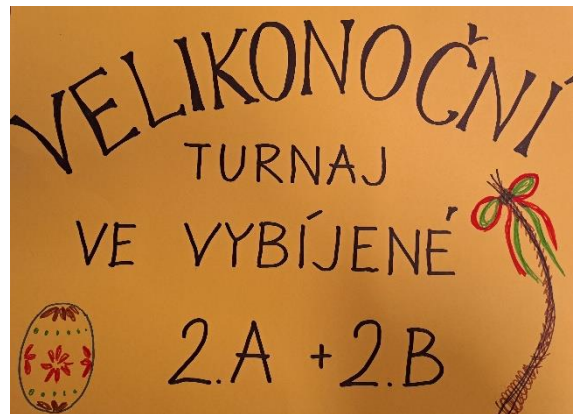 VELIKONOČNÍ
TURNAJ
VE VYBÍJENÉ
2.A + 2.B